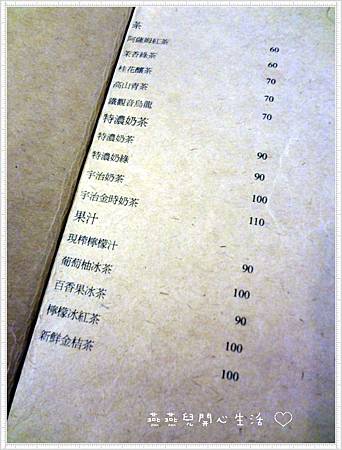 茶
阿薩姆紅茶 60
茉香綠茶 60
桂花釀茶 70
高山青茶 70
鐵觀音烏龍 70
特濃奶茶
特濃奶茶 90
特濃奶綠 90
宇治奶茶 100
宇治金時奶茶 110
果汁
現榨檸檬汁 90
葡萄柚冰茶 100
百香果冰茶 90
檸檬冰紅茶 100
新鮮金桔茶 100
燕燕兒開心生活 ♡